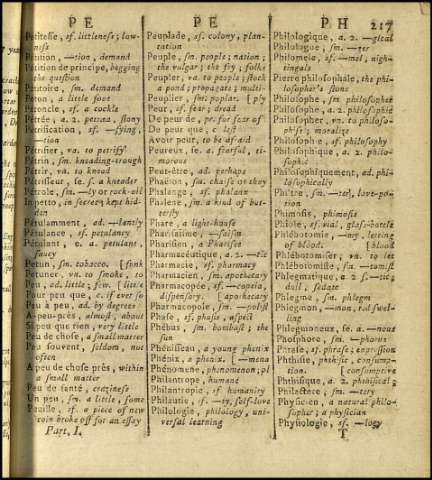 P E
Petitesse, sf. littleness; low-
ness
Petition, —tion, demand
Pétition de principe, begging
the question
Pétitoire, sm. demand
Péton, a little foot
Petoncle, sf. a cockle
Pétrée, a. 2. petræa, stony
Pétrification, sf. —fying,
—tion
Pétrifier, va. to petrify
Pétrin, sm. kneading-trough
Pétrir, va. to knead
Pétrisseur, se. s. a kneader
Pétrole, sm. —ly or rock-oil
In petto, in secrecy, kept hid-
den
Pétulamment, ad. —lantly
Pétulance, sf. petulancy
Pétulant, e. a. petulant,
saucy
Petun, sm. tobacco.
Petuner, vn. to smoke, to
Peu, ad. little, few.
Pour peu que, c. if ever so
Peu à peu, ad. by degrees
A-peu-près, almost, about
Si peu que rien, very little
Peu de chose, a small matter
Peu souvent, seldom, not
often
A peu de chose près, within
a small matter
Peu de santé, craziness
Un peu, sm. a little, some
Peuille, sf. a piece of new
coin broke off for an essay
Part. I.
P E
Peuplade, sf. colony, plan-
tation
Peuple, sm. people; nation;
the vulgar; the fry; folks
Peupler, va. to people; stock
a pond; propagate; multi-
Peuplier, sm. poplar. [ply
Peur, sf. fear; dread
De peur de, pr. for fear of
De peur que, c. lest
Avoir peur, to be afraid
Peureux, se. a. fearful, ti-
morous
Peut-être, ad. perhaps
Phaéton, sm. chaise or they
Phalange, sf. phalanx
Phalene, sm. a kind of but-
terfly
Phare, a light-house
Pharisaïsme, —saism
Pharisien, a Pharisee
Pharmaceutique, a. 2. —tic
Pharmacie, sf. pharmacy
Pharmacien, sm. apothecary
Pharmacopée, sf. —copeia,
dispensory. [apothecary
Pharmacopole, sm. —polist
Phase, sf. phasis, aspect
Phébus, sm. bombast; the
sun
Phéniseau, a young phenix
Phénix, a phenix. [—mena
Phénomene, phenomenon; pl
Philantrope, human
Philantropie, sf. humanity
Philautie, sf. —ty, self-love
Philologie, philology, uni-
versal learning
P H 217
Philologique, a. 2. —gical
Philologue, sm. —ger
Philomela, sf. —mel, night-
tingale
Pierre philosophale, the phi-
losopher's stone
Philosophe, sm. philosopher
Philosophe, a. 2. philosophic
Philosopher, vn. to philoso-
phise; moralize
Philosophie, sf. philosophy
Philosophique, a. 2. philo-
sophic
Philosophiquement, ad. phi-
losophically
Philtre, sm. —ter, love-po-
tion
Phimosis, phimosis
Phiole, sf. vial, glass-bottle
Phlébotomie, —my, letting
of blood. [blood
Phlébotomiser, va. to let
Phlébotomiste, sm. —tomist
Phlegmatique, a. 2. s. —tic;
dull, sedate
Phlegme, sm. phlegm
Phlegmon, —mon, red swel-
ling
Phlegmoneux, se. a. —nous
Phosphore, sm. —phorus
Phrase, sf. phrase; expression
Phthisie, phthisic, consump-
tion. [consumptive
Phthisique, a. 2. phthisical;
Philactere, sm. —tery
Physicien, a natural philo-
sopher; a physician
Physiologie, sf. —logy
T